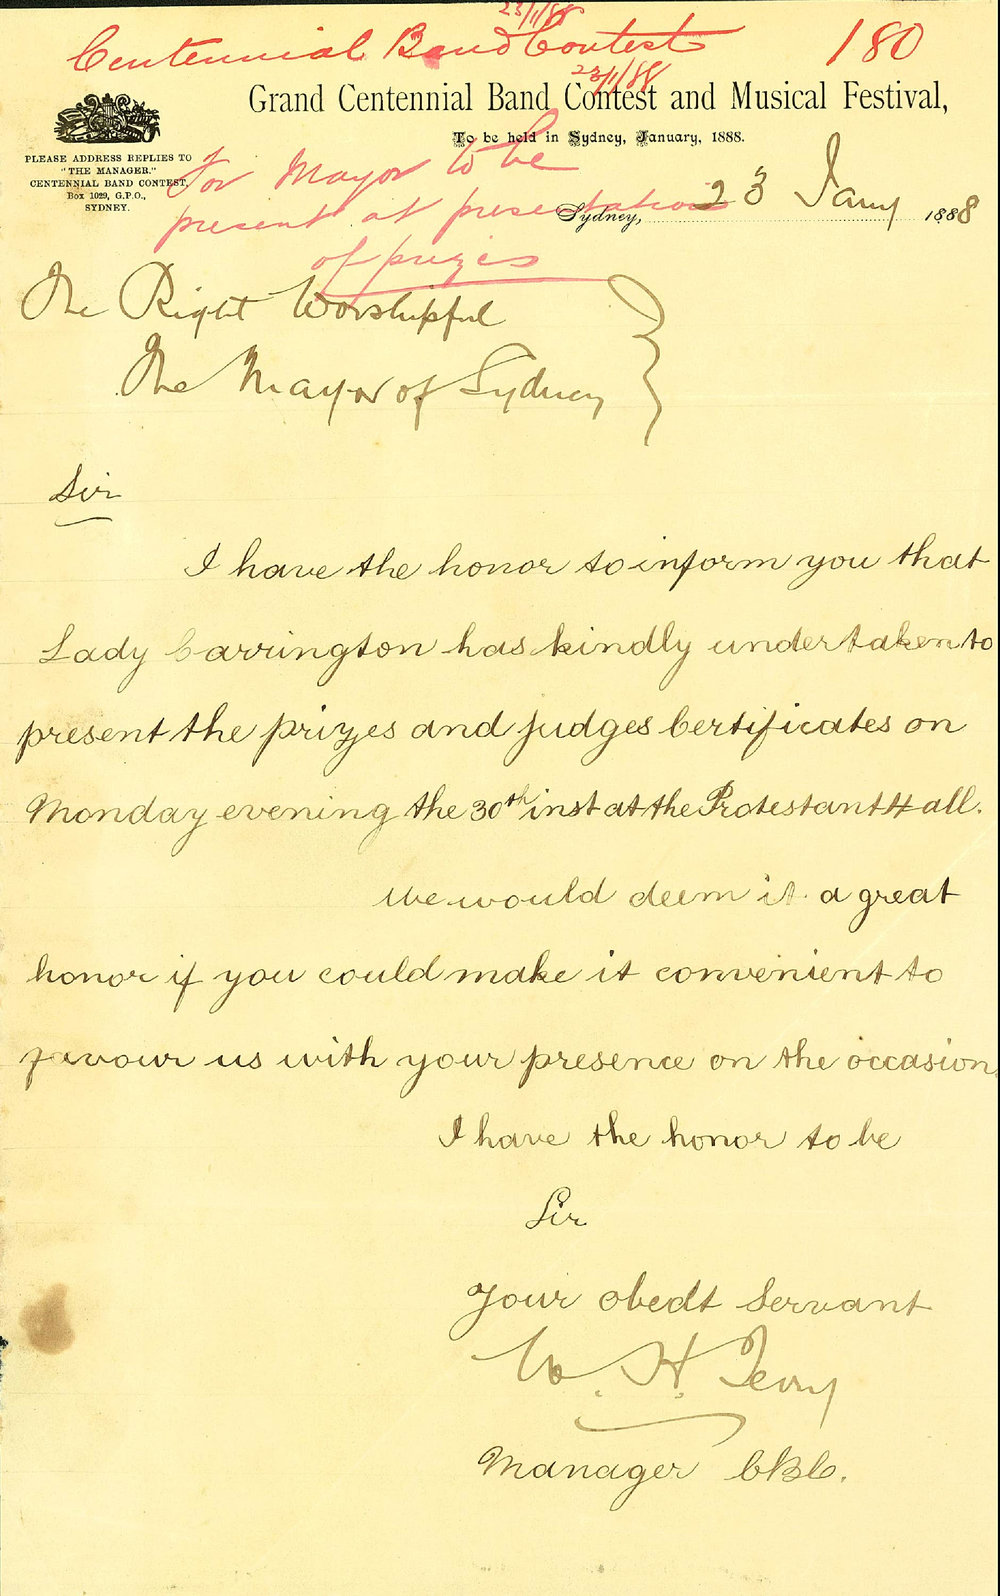 23/1/88
Centennial Band Contest 180
23/1/88
Grand Centennial Band Contest and Musical Festival,
To be held in Sydney, January, 1888.
PLEASE ADDRESS REPLIES TO
"THE MANAGER."
CENTENNIAL BAND CONTEST,
Box 1029, G.P.O.,
SYDNEY.
For Mayor to be
present at presentation
of prizes
Sydney, 23 Jany 1888
The Right Worshipful
The Mayor of Sydney
Sir
I have the honor to inform you that
Lady Carrington has kindly undertaken to
present the prizes and judges Certificates on
Monday evening the 30th inst at the Protestant Hall.
We would deem it a great
honor if you could make it convenient to
favour us with your presence on the occasion,
I have the honor to be
Sir
Your obedt Servant
W. H. Terry
Manager C.B.C.